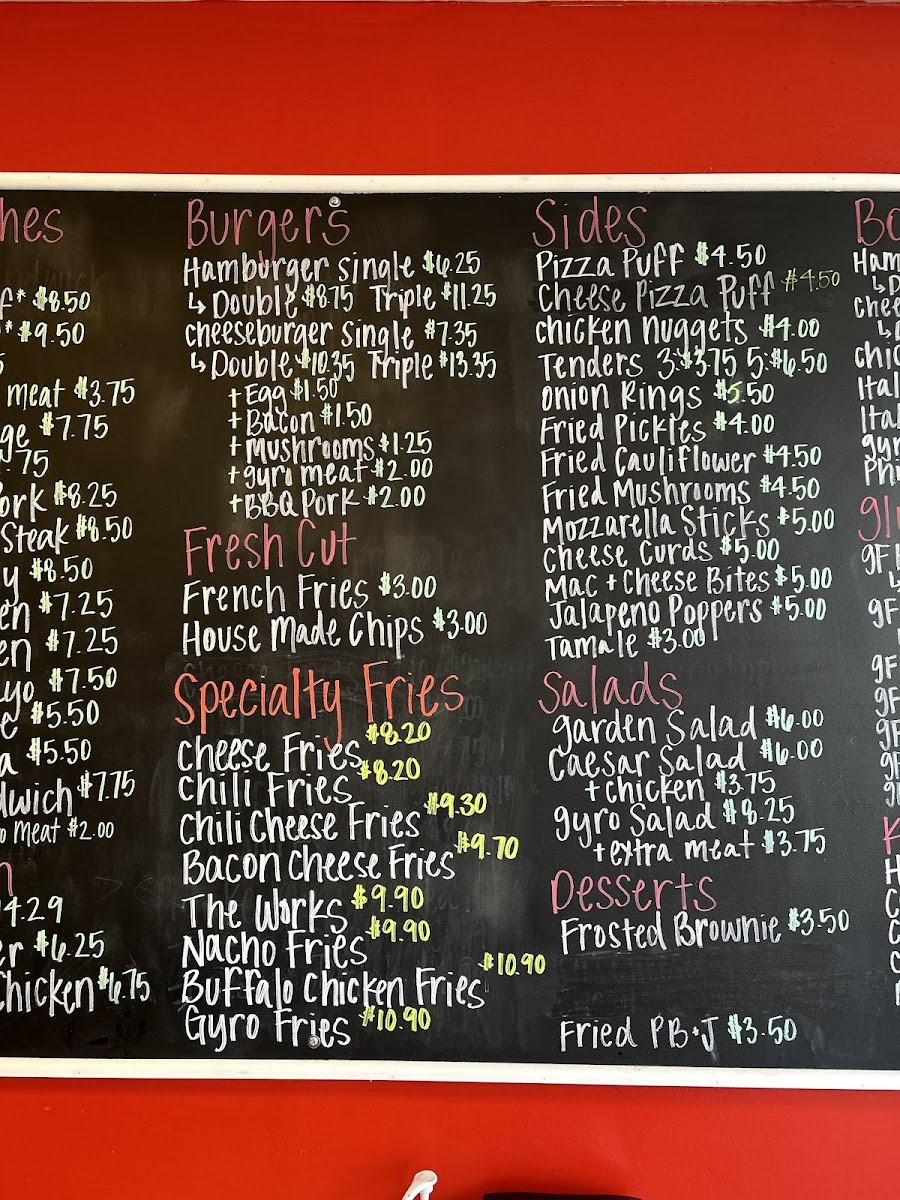 hes
f* $8.50
* $9.50
meat $3.75
ge $7.75
.75
ork $8.25
Steak $8.50
y $8.50
en $7.25
en $7.25
yo $7.50
e $5.50
a $5.50
dwich $7.75
o meat $2.00
n
4.29
er $6.25
Chicken $6.75
Burgers
Hamburger single $6.25
↳ Double $8.75 Triple $11.25
cheeseburger single $7.35
↳ Double $10.35 Triple $13.35
+ Egg $1.50
+ Bacon $1.50
+ mushrooms $1.25
+ gyro meat $2.00
+ BBQ Pork $2.00
Fresh Cut
French Fries $3.00
House Made Chips $3.00
Specialty Fries
Cheese Fries $8.20
Chili Fries $8.20
Chili Cheese Fries $9.30
Bacon Cheese Fries $9.70
The Works $9.90
Nacho Fries $9.90
Buffalo Chicken Fries $10.90
Gyro Fries $10.90
Sides
Pizza Puff $4.50
Cheese Pizza Puff $4.50
chicken nuggets $4.00
Tenders 3:$3.75 5:$6.50
Onion Rings $5.50
Fried Pickles $4.00
Fried Cauliflower $4.50
Fried Mushrooms $4.50
Mozzarella Sticks $5.00
Cheese Curds $5.00
Mac + Cheese Bites $5.00
Jalapeno Poppers $5.00
Tamale $3.00
Salads
garden Salad $6.00
Caesar Salad $6.00
+ chicken $3.75
gyro Salad $8.25
+ extra meat $3.75
Desserts
Frosted Brownie $3.50
Fried PB+J $3.50
Bo
Ham
↳ D
chee
↳
chic
Ital
Ita
gyr
Phi
glu
gF
↳
gF
gF
gF
gF
gF